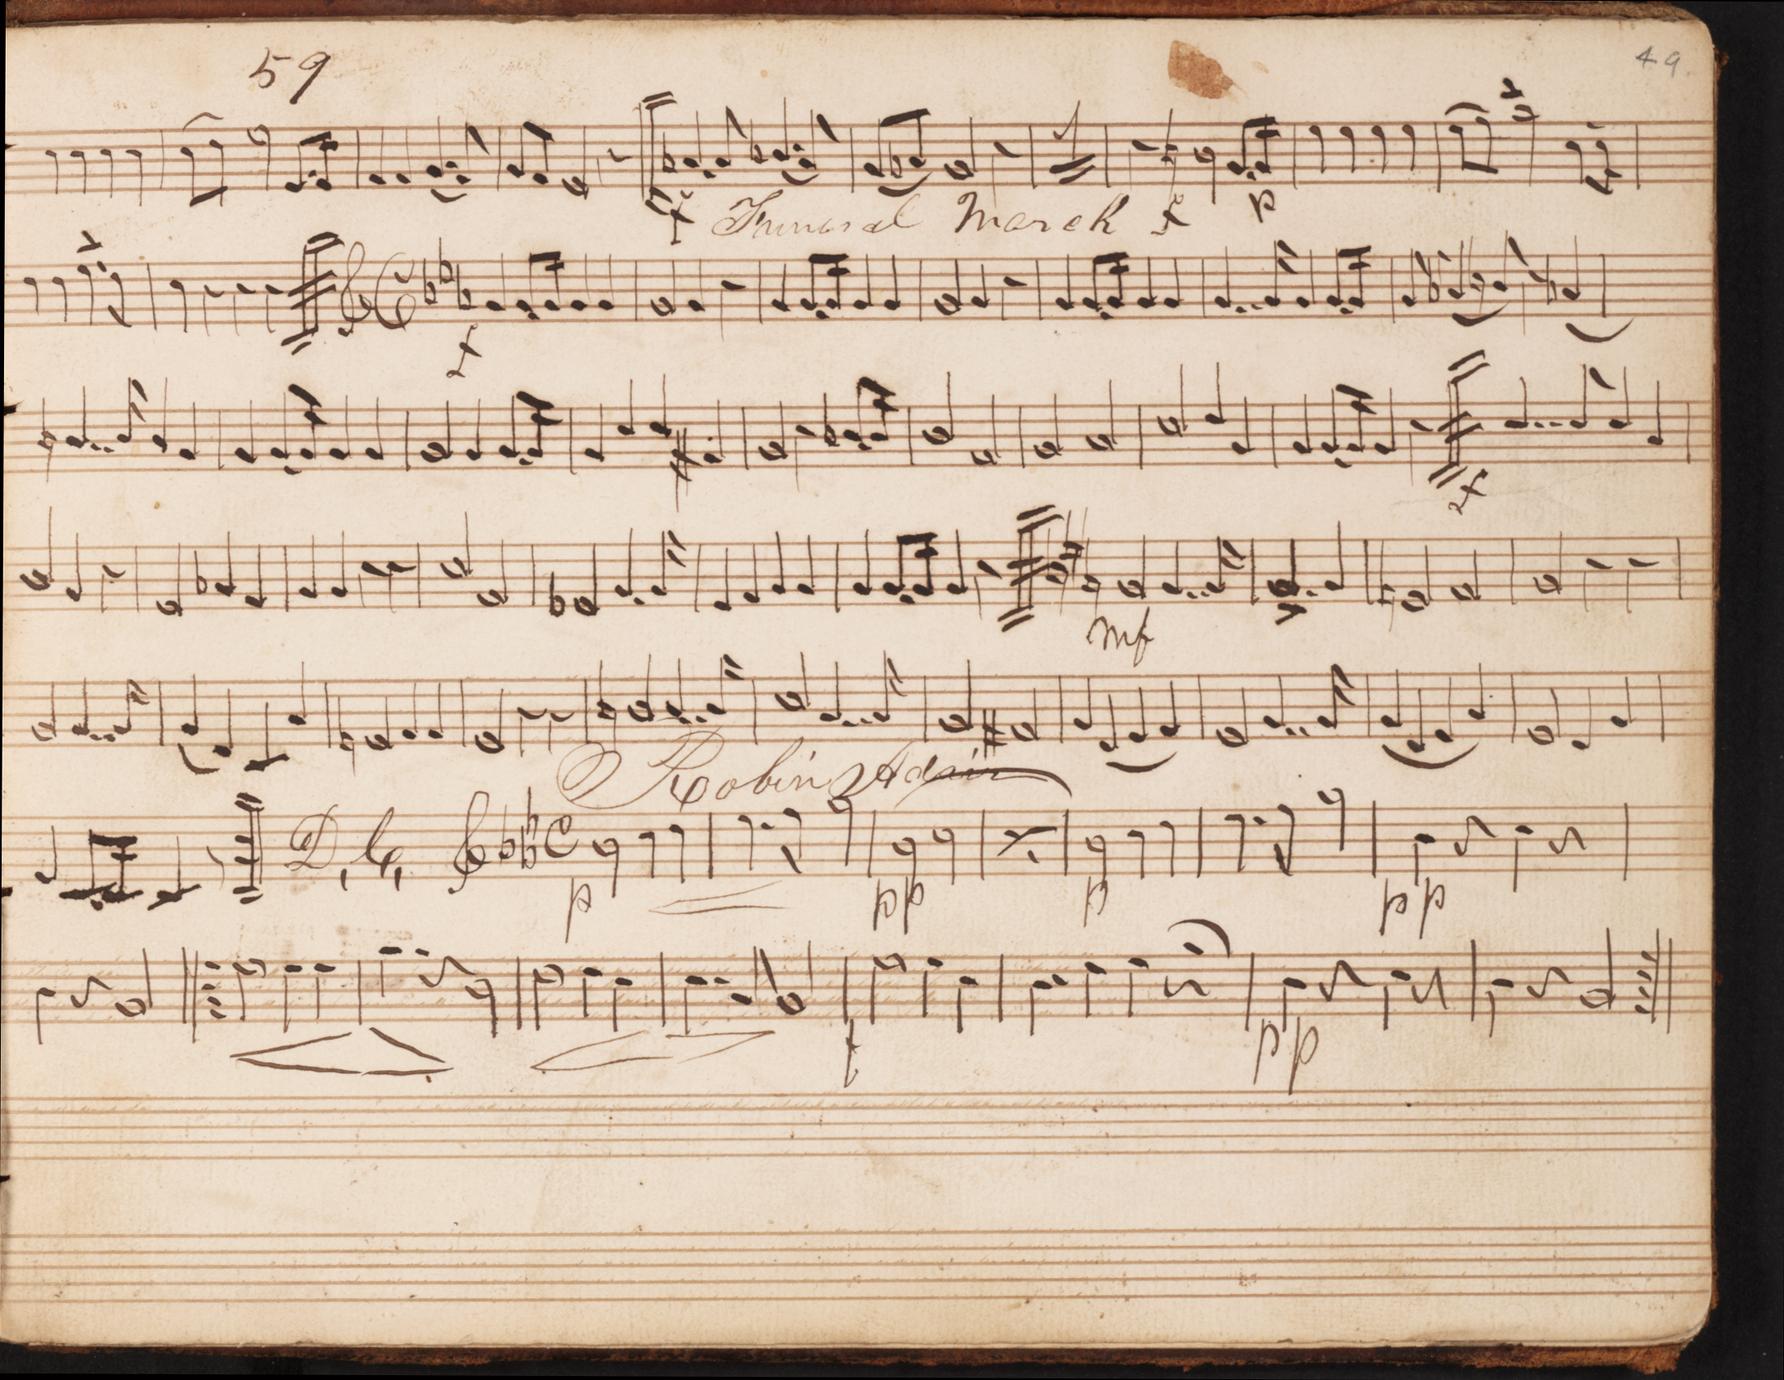 59
49.
f Funeral March f p
f
f
mf
Robin Adair
D, C,
p pp p pp
f pp